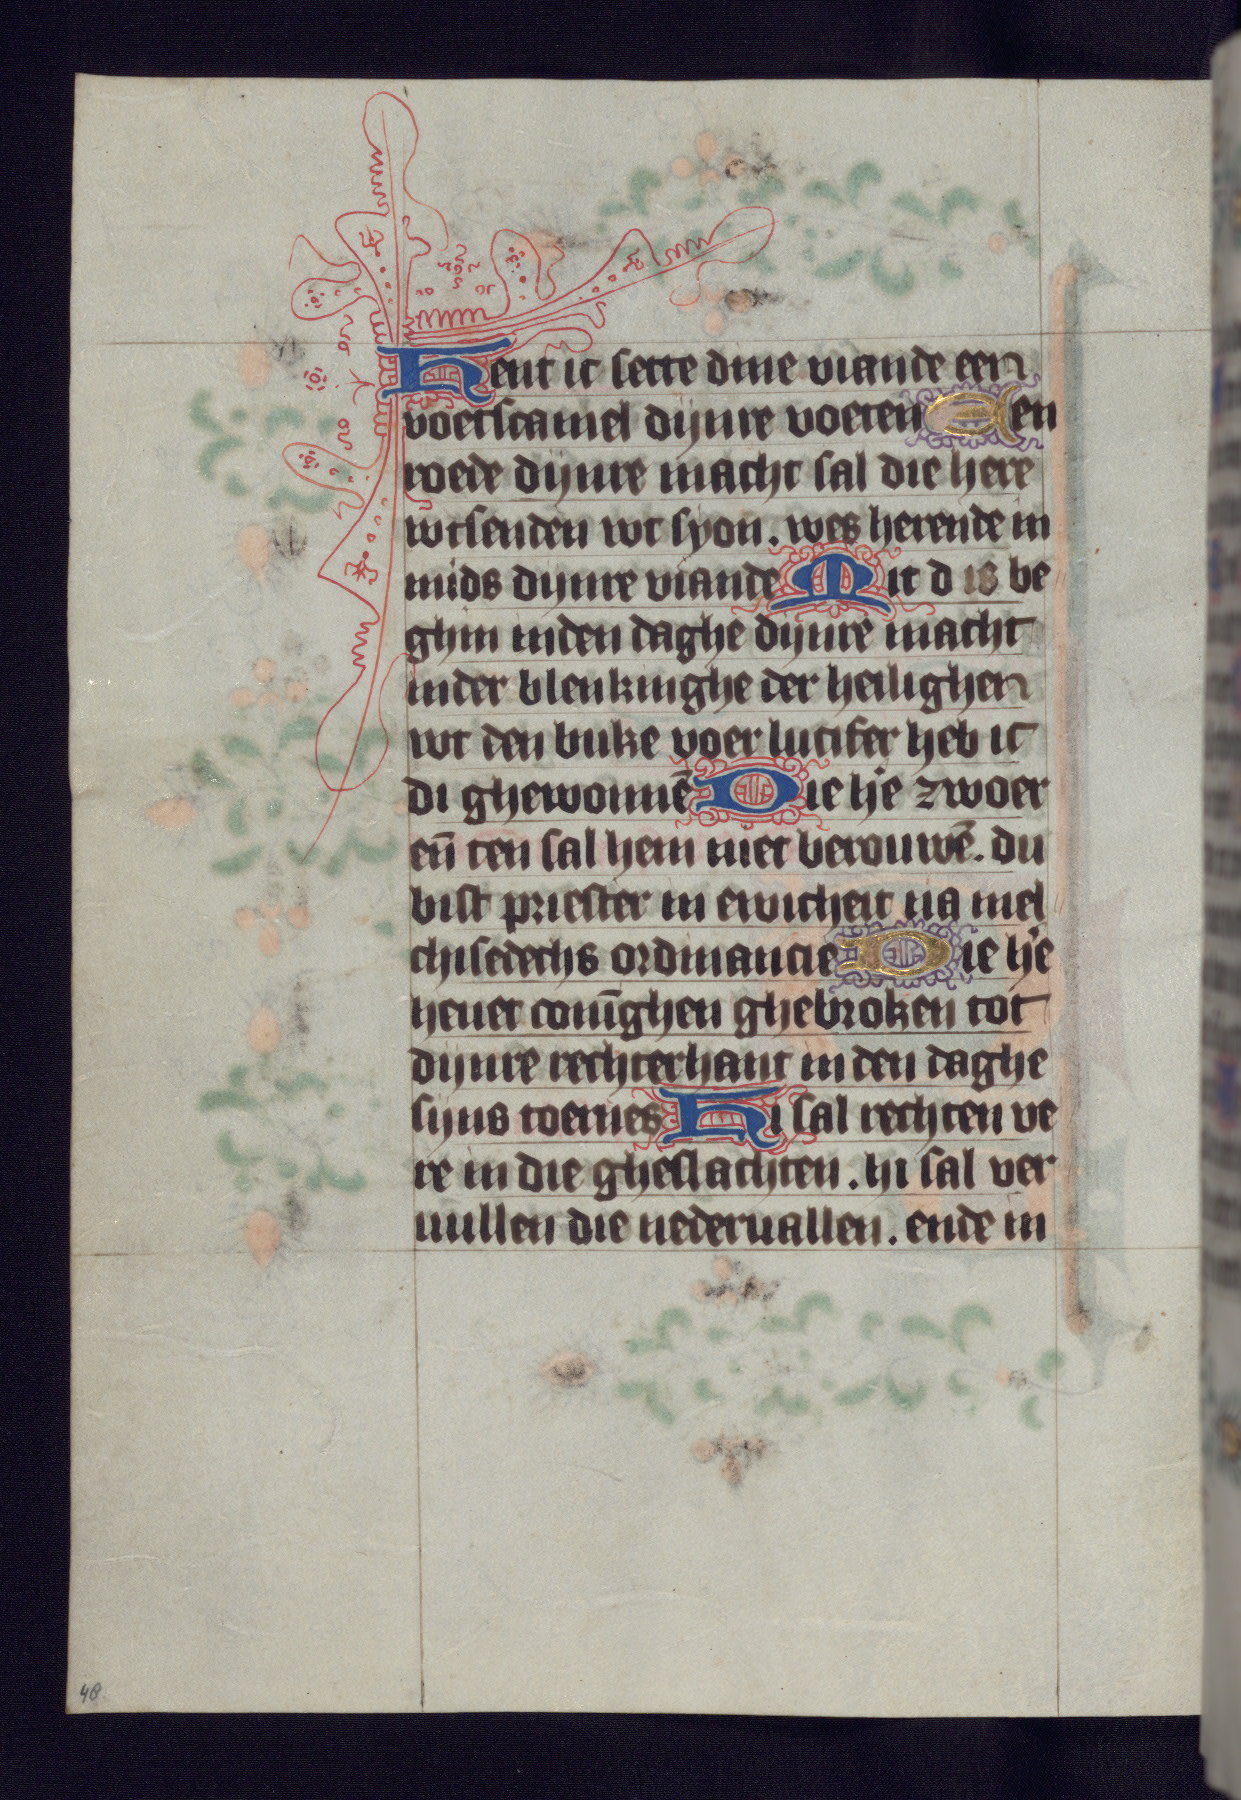 Hent ic sette dine viande een
voetscamel dijnre voeten Een
roede dijnre macht sal die here
wtsenden wt syon. wes herende in
mids dijnre viande Mit d is be
ghin inden daghe dijnre macht
inder blenkinghe der heilighen
wt den buke voer lucifer heb ic
di ghewonnē Die h'e zwoer
eñ ten sal hem niet berouwē. du
bist priester in ewicheit na mel
chisedechs ordinancie Die h'e
heuet coni̅ghen ghebroken tot
dijnre rechterhant in den daghe
sijns toernes Hi sal rechten ve
re in die gheslachten. hi sal ver
uullen die nederuallen. ende in
48